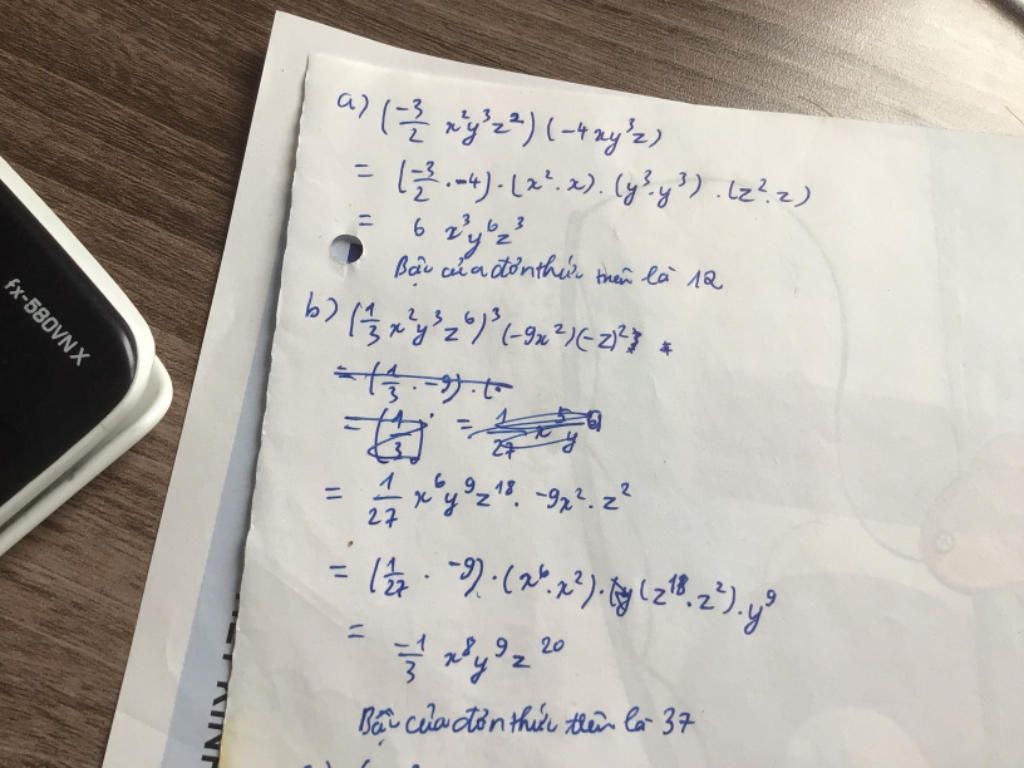 a) (-3/2 x²y³z²) (-4xy³z)
= (-3/2 · -4) · (x² · x) · (y³ · y³) · (z² · z)
= 6 x³y⁶z³
Bậc của đơn thức trên là 12
b) (1/3 x²y³z⁶)³ (-9x²) (-z)²
= (1/3 · -9) · (
= (1/3 = 1/27 x y
= 1/27 x⁶y⁹z¹⁸ · -9x² · z²
= (1/27 · -9) · (x⁶ · x²) · (z¹⁸ · z²) · y⁹
= -1/3 x⁸y⁹z²⁰
Bậc của đơn thức trên là 37
fx-580VN X